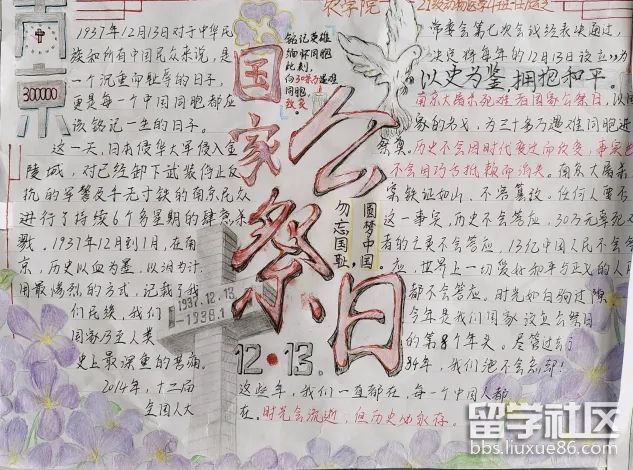 农学院
南京
300000
1937年12月13日对于中华民
族和所有中国民众来说,是
一个沉重而耻辱的日子,
更是每一个中国同胞都应
该铭记一生的日子。
这一天,日本侵华大军侵入金
陵城,对已经卸下武装停止反
抗的军警及手无寸铁的南京民众
进行了持续6个多星期的肆意杀
戮,1937年12月到1月,在南
京,历史以血为墨,以泪为计,
用最惨烈的方式,记载了我
们民族,我们
国家乃至人类
史上最深重的苦痛。
2014年,十二届
全国人大
1937.12.13.
-1938.1
铭记英雄
缅怀同胞
此刻,
向30万遇难
同胞
致哀
国家公祭日
勿忘国耻,
圆梦中国
12·13.
常委会第七次会议经表决通过,
决定将每年的12月13日设立为
以史为鉴 拥抱和平。
南京大屠杀死难者国家公祭日,以国
家的名义,为三十多万遇难同胞进行
祭奠。历史不会因时代变迁而改变,事实也
不会因巧舌抵赖而消失。南京大屠杀
案铁证如山、不容篡改。任何人要否
这一事实,历史不会答应,30万无辜死
者的亡灵不会答应,13亿中国人民不会答
应,世界上一切爱好和平与正义的人
都不会答应。时光如白驹过隙
今年是我们国家设立公祭日
的第8个年头。尽管过去了
84年,我们绝不会忘却!
这些年,我们一直都在,每一个中国人都
在。时光会流逝,但历史必永存。
留学社区
bbs.liuxue86.com